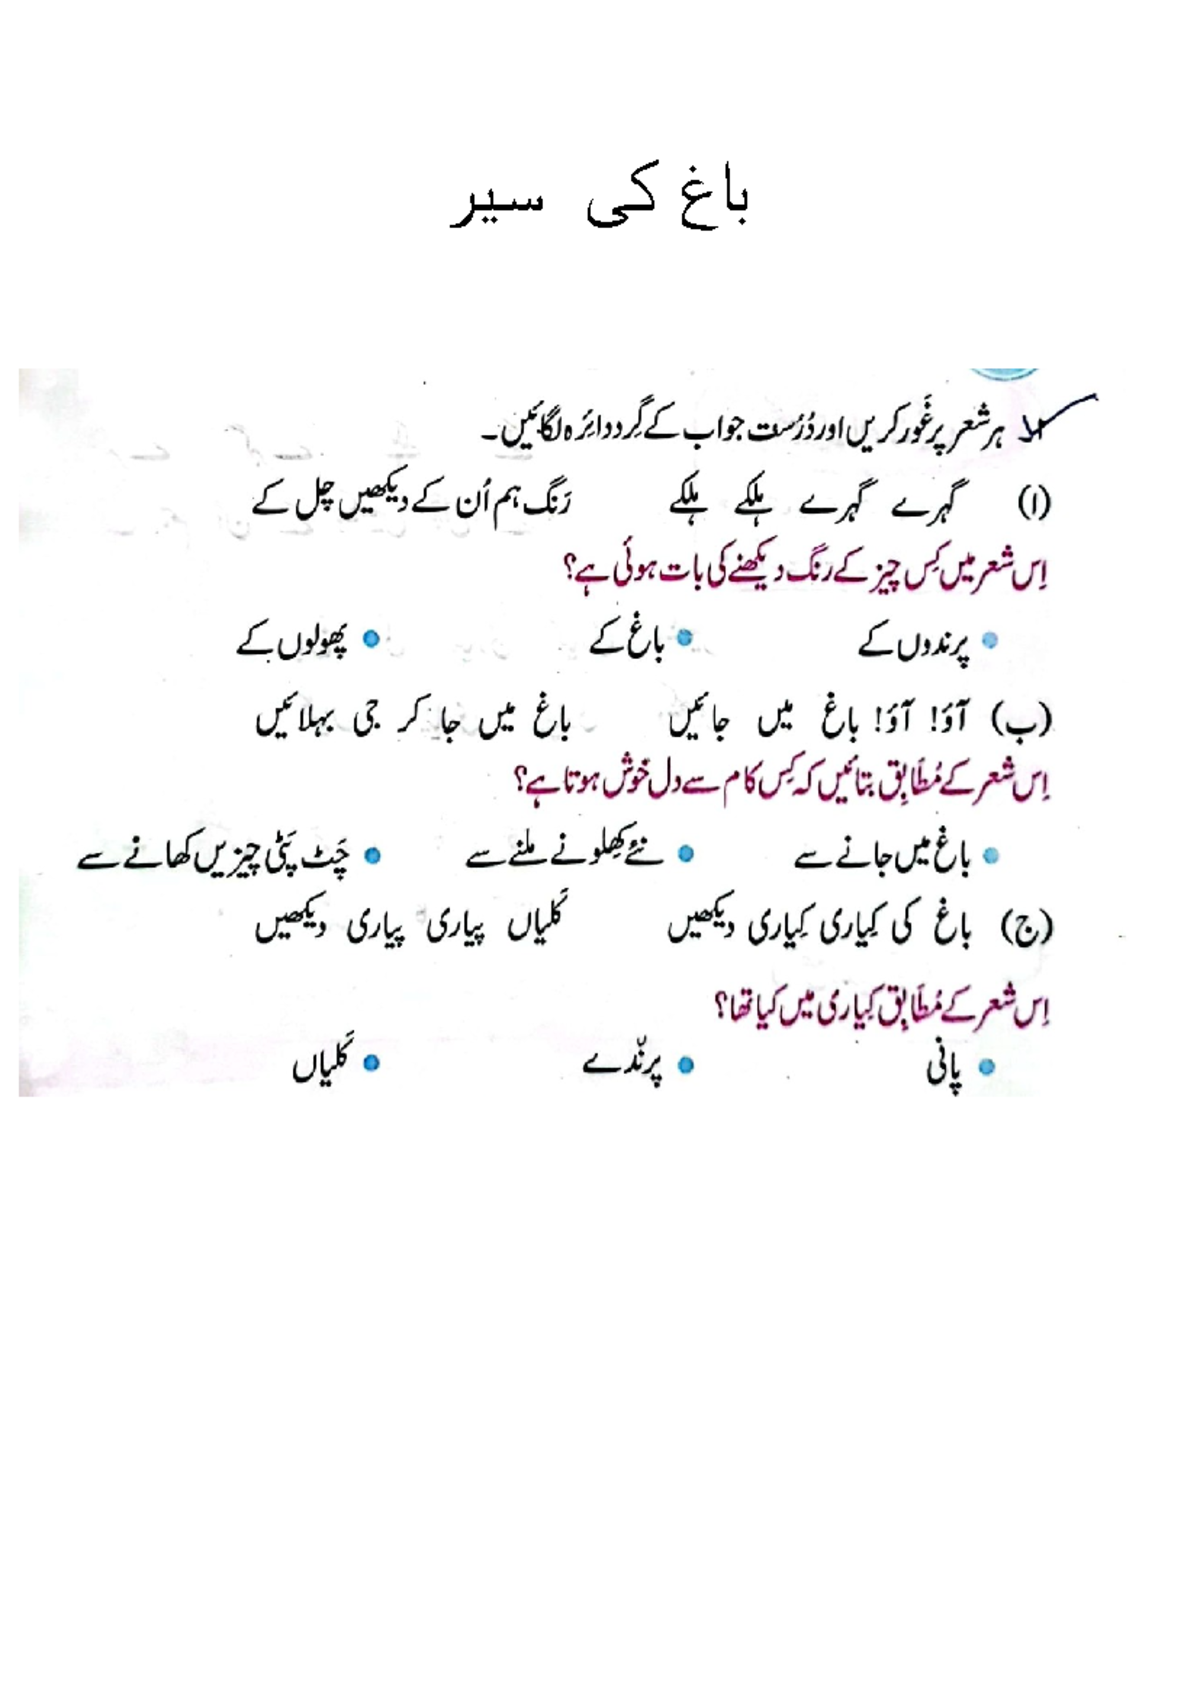 باغ کی سیر
۱۔ ہر شعر پر غَور کریں اور دُرُست جواب کے گِرد دائِرہ لگائیں۔
(ا) گہرے گہرے ہلکے ہلکے رَنگ ہم اُن کے دیکھیں چل کے
اِس شعر میں کِس چیز کے رنگ دیکھنے کی بات ہوئی ہے؟
• پرندوں کے • باغ کے • پھولوں کے
(ب) آؤ! آؤ! باغ میں جائیں باغ میں جا کر جی بہلائیں
اِس شعر کے مُطَابِق بتائیں کہ کِس کام سے دل خُوش ہوتا ہے؟
• باغ میں جانے سے • نئے کھِلونے ملنے سے • چَٹ پَٹی چیزیں کھانے سے
(ج) باغ کی کِیاری کِیاری دیکھیں کَلیاں پیاری پیاری دیکھیں
اِس شعر کے مُطَابِق کِیاری میں کیا تھا؟
• پانی • پرنّدے • کَلیاں